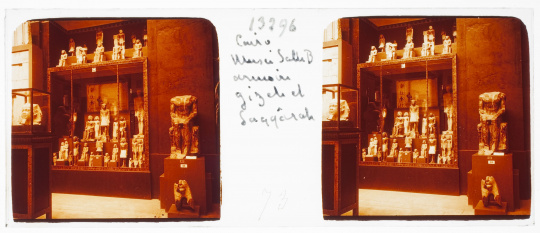 13296
Cairo
Musei Salle B
armoire
gizeh et
Saqqârah
76